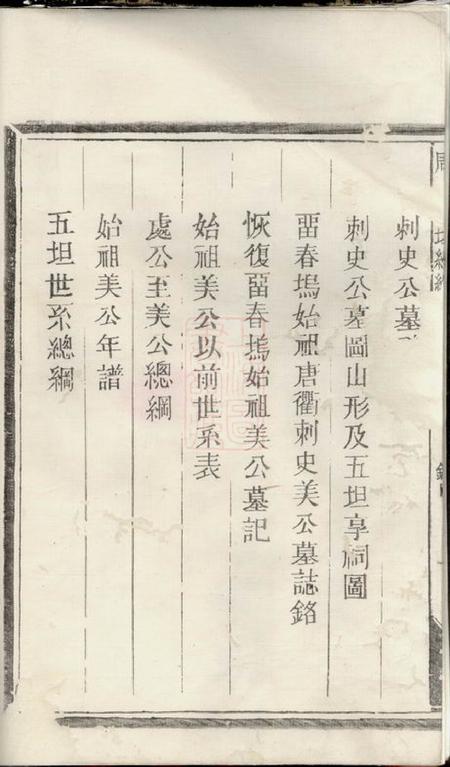 刺史公墓
刺史公墓圖山形及五坦享祠圖
畱春塢始祖唐衢刺史美公墓誌銘
恢復畱春塢始祖美公墓記
始祖美公以前世系表
處公至美公總綱
始祖美公年譜
五坦世系總綱